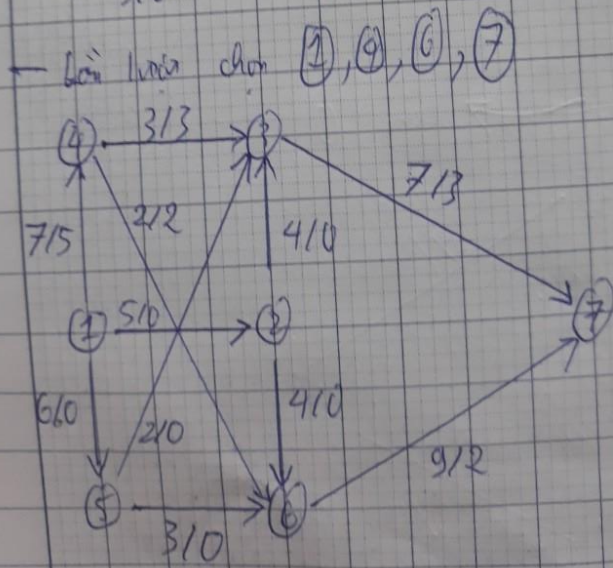 — Lần lượt chọn ①, ④, ⑥, ⑦
④ 3/3 ③
7/3
7/5 2/2 4/0
① 5/0 ② ⑦
6/0 2/0 4/0
9/2
⑤ 3/0 ⑥